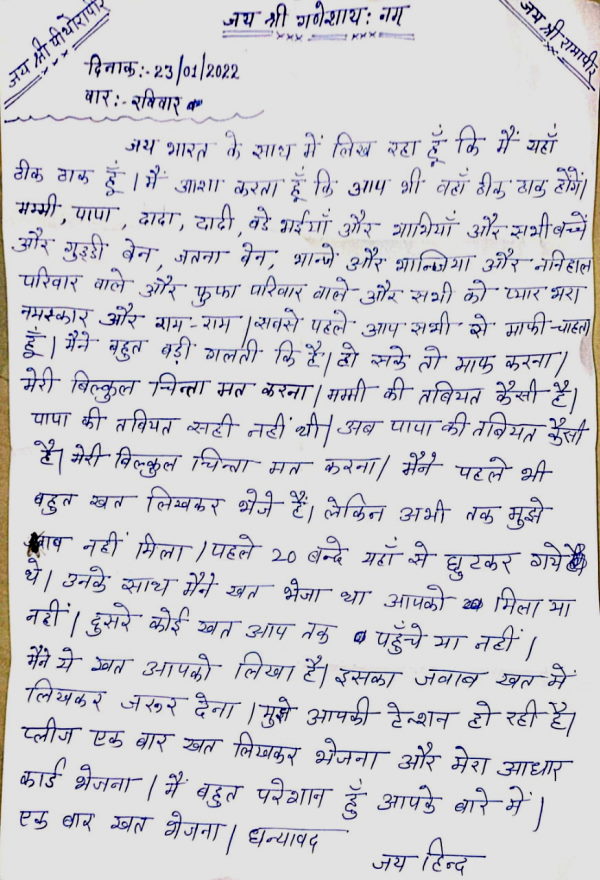 जय श्री गणेशाय: नम
जय श्री पीथोरापीर
जय श्री रामापीर
दिनाक:-23/01/2022
वार:- रविवार
जय भारत के साथ में लिख रहा हूँ कि मैं यहाँ
ठीक ठाक हूँ। मैं आशा करता हूँ कि आप भी वहाँ ठीक ठाक होंगे।
मम्मी, पापा, दादा, दादी, बडे भईयाँ और भाभियाँ और सभी बच्चें
और गुड्डी बेन, जतना बेन, भान्जे और भान्जिया और ननिहाल
परिवार वाले और फुफा परिवार वाले और सभी को प्यार भरा
नमस्कार और राम-राम। सबसे पहले आप सभी से माफी चाहता
हूँ। मैंने बहुत बड़ी गलती कि है। हो सके तो माफ करना।
मेरी बिल्कुल चिन्ता मत करना। मम्मी की तबियत कैसी है।
पापा की तबियत सही नहीं थी। अब पापा की तबियत कैसी
है। मेरी बिल्कुल चिन्ता मत करना। मैंने पहले भी
बहुत खत लिखकर भेजे हैं। लेकिन अभी तक मुझे
नहीं मिला। पहले 20 बन्दे यहाँ से छुटकर गये
थे। उनके साथ मैंने खत भेजा था आपको मिला या
नहीं। दुसरे कोई खत आप तक पहुँचे या नहीं।
मैंने ये खत आपको लिखा है। इसका जवाब खत में
लिखकर जरूर देना। मुझे आपकी टेन्शन हो रही है।
प्लीज एक बार खत लिखकर भेजना और मेरा आधार
कार्ड भेजना। मैं बहुत परेशान हूँ आपके बारे में।
एक बार खत भेजना। धन्यावद
जय हिन्द